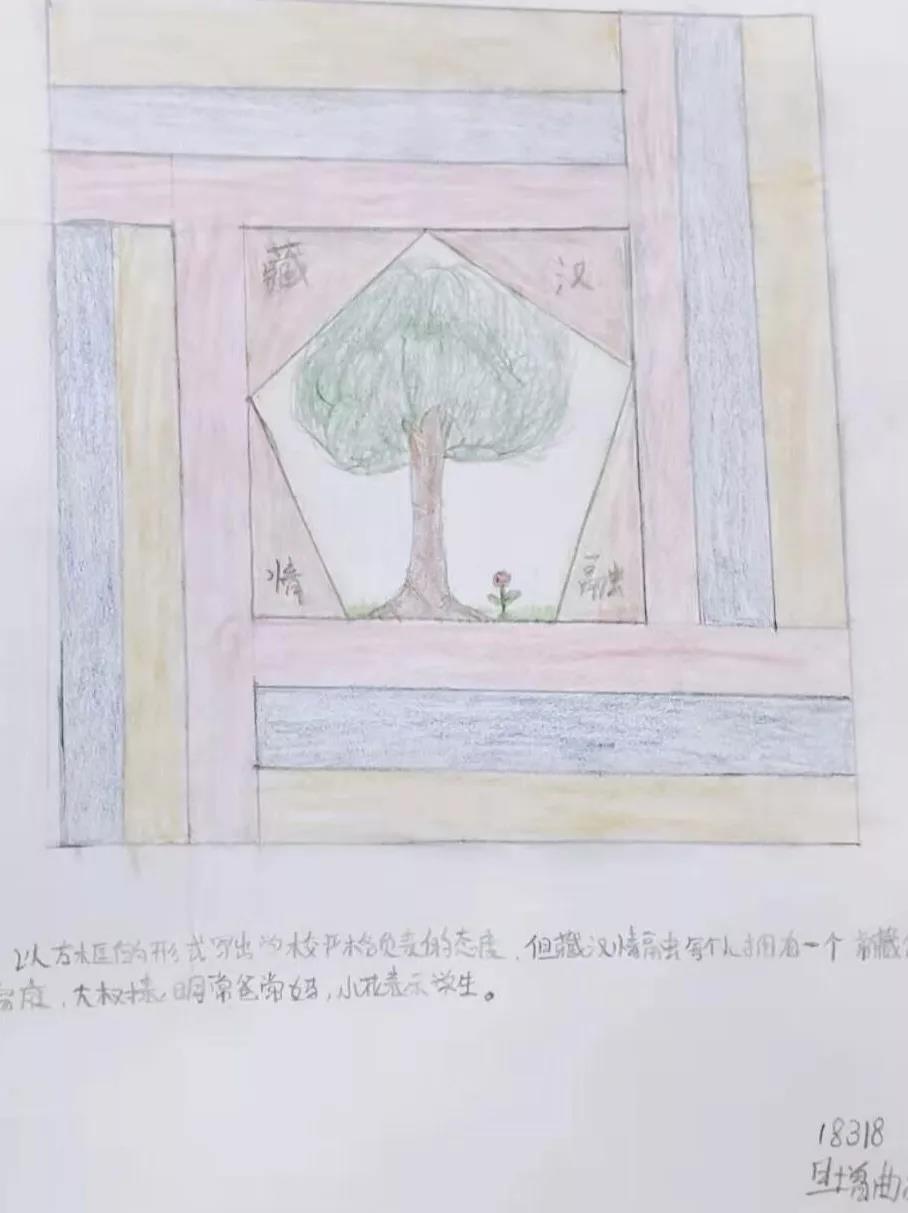 藏 汉
情 融
以方框的形式写出学校严格负责的态度，但藏汉情融每个人拥有一个常藏
家庭，大树表明常爸常妈，小花表示学生。
18318
旦增曲